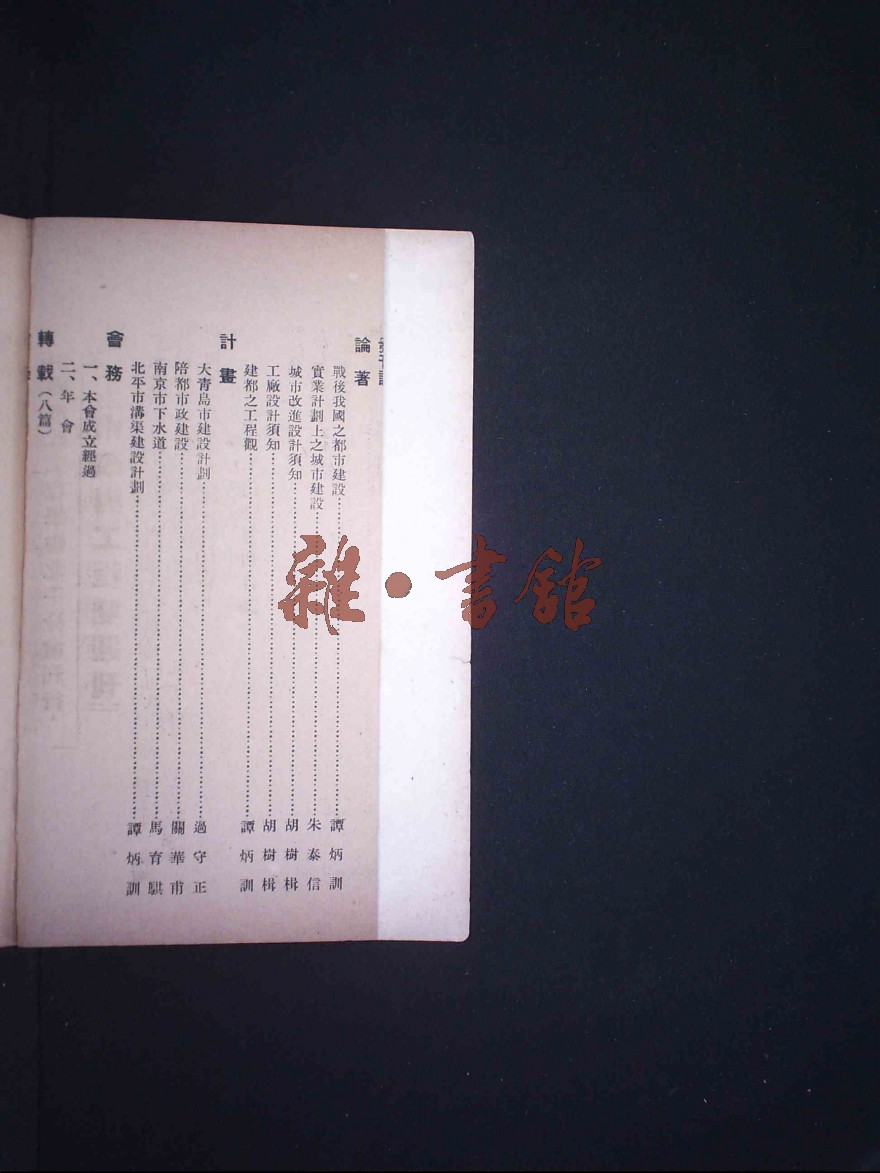 論著
戰後我國之都市建設……譚炳訓
實業計劃上之城市建設……朱泰信
城市改進設計須知……胡樹楫
工廠設計須知……胡樹楫
建都之工程觀……譚炳訓
計畫
大青島市建設計劃……過守正
陪都市政建設……關華甫
南京市下水道……馬育騏
北平市溝渠建設計劃……譚炳訓
會務
一、本會成立經過
二、年會
轉載(八篇)
雜·書館